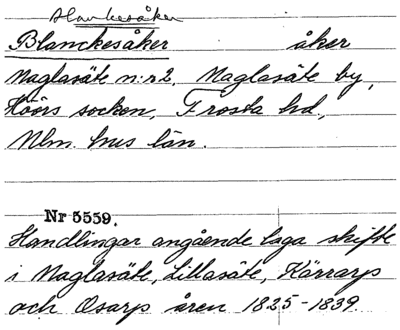 Blankesåker
Blanckesåker åker
Maglasäte n:r 2, Maglasäte by,
Höörs socken, Frosta hd,
Mlm. hus län.
Nr 5559.
Handlingar angående laga skifte
i Maglasäte, Lillasäte, Kärrarp
och Osarp åren 1825-1839.